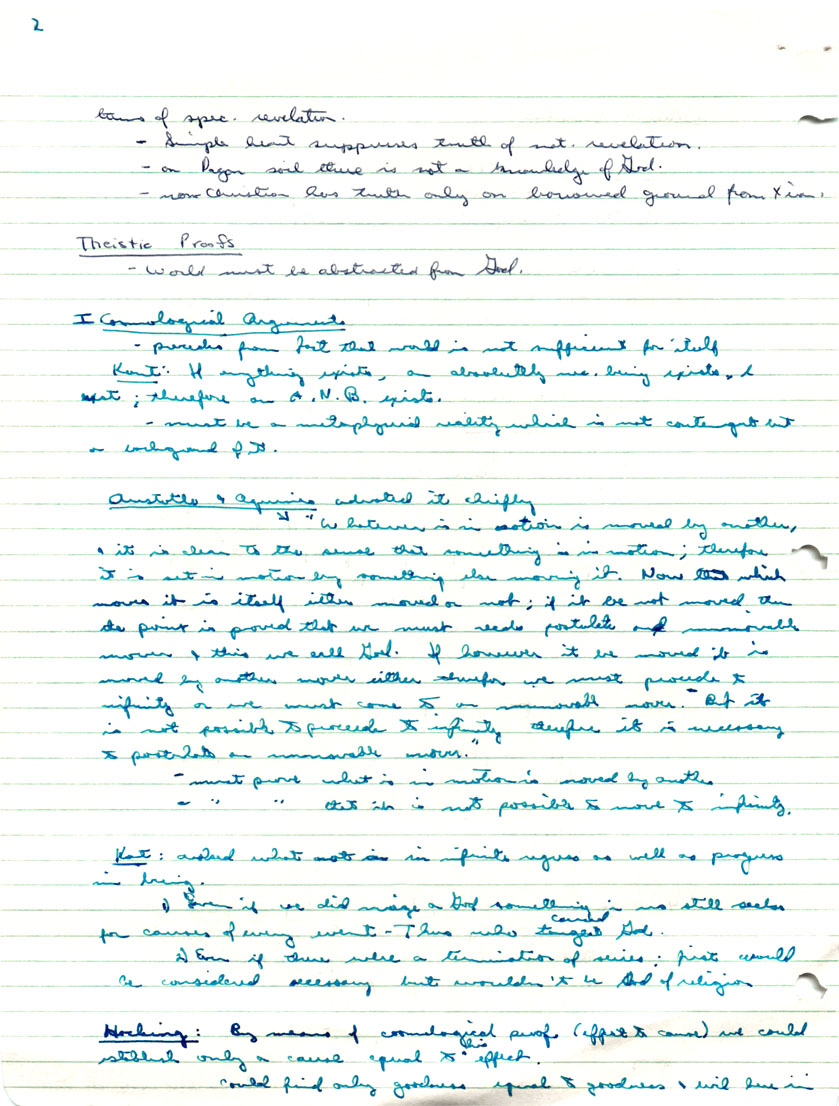 2
terms of spec. revelation.
- Simple heart suppresses truth of nat. revelation.
- on Pagan soil there is not a knowledge of God.
- non Christian has truth only on borrowed ground from Xian.
Theistic Proofs
- World must be abstracted from God.
I Cosmological Arguments
- procedes from fact that world is not sufficient for itself
Kant: If anything exists, an absolutely nec. being exists, I
exist; therefore an A.N.B. exists.
- must be a metaphysical reality which is not contingent but
a background of it.
Aristotle & Aquinas advocated it chiefly
"Whatever is in motion is moved by another,
& it is clear to the sense that something is in motion; therefore
it is set in motion by something else moving it. Now that which
moves it is itself either moved or not; if it be not moved then
the point is proved that we must needs postulate an immovable
mover & this we call God. If however it be moved it is
moved by another mover either therefor we must procede to
infinity or we must come to an immovable mover. But it
is not possible to procede to infinity therefore it is necessary
to postulate an immovable mover."
- must prove what is in motion is moved by another
- " " that it is not possible to move to infinity.
Kant: asked what in infinite regress as well as progress
in being.
1) Even if we did a God something in us still seeks
for causes of every event - Thus who caused God.
2) Even if there were a termination of series; first would
be considered necessary but wouldn't be God of religion
Hocking: By means of cosmological proof (effect to cause) we could
establish only a cause equal to this effect.
could find only goodness equal to goodness & evil here in